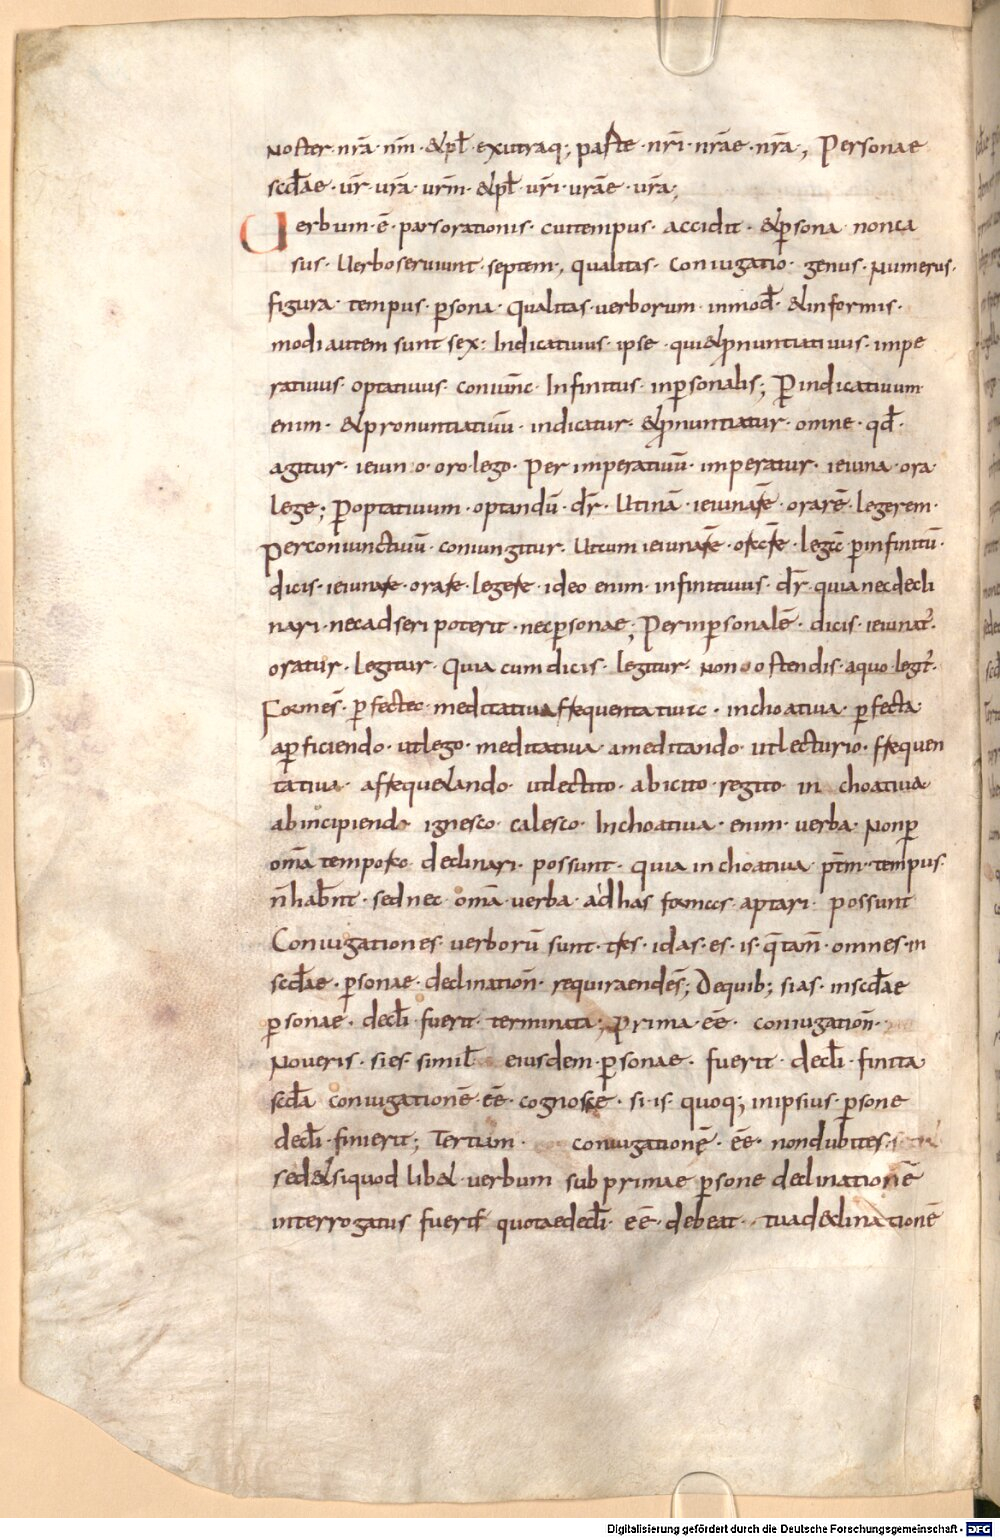 noster· nr̄a· nr̄m· &pł· exutraq; parte· nr̄i· nr̄ae· nr̄a; Personae
scd̄ae· ur̄· ur̄a· ur̄m· &pł· ur̄i· ur̄ae· ur̄a;
Uerbum· ē· pars orationis· cui tempus· accidit· &p̱sona· non ca
sus· Uerbo seruiunt· septem, qualitas· coniugatio· genus· numerus·
figura· tempus· p̱sona· Qualitas· uerborum· in mod̄· & in formis·
modi autem sunt sex: Indicatiuus· ipse· qui&p̱nuntiatiuus· impe
ratiuus· optatiuus· coniunc̄· Infinitus· inp̱sonalis; P̱ indicatiuum
enim· &pronuntiatiuū· indicatur· &p̱nuntiatur· omne· qd̄·
agitur· ieiuno· oro· lego· Per imperatiuū· imperatur· ieiuna· ora·
lege; P̱ optatiuum· optandū· dr̄· Utinā· ieiunarē· orarē· legerem·
Per coniunctiuū· coniungitur· Ut cum ieiunarē· p̱ infinitū·
dicis· ieiunare· orare· legere· ideo enim· infinitiuus· dr̄· quia nec decli
nari· nec adseri poterit· nec p̱sonae; Per inp̱sonalē· dicis· ieiunat̄·
oratur· legitur· Quia cum dicis· legitur· non ostendis· a quo· legit̄·
Formēs· p̱fectae· meditatiua frequentatiuae· inchoatiua· p̱fecta·
a p̱ficiendo· ut lego· meditatiua· a meditando· ut lecturio· frequen
tatiua· a frequ&ando· ut lectito· ab icito· regito· in choatiua
ab incipiendo· ignesco· calesco· Inchoatiua· enim· uerba· non p̱
om̄a tempora· declinari· possunt· quia in choatiua· pt̄m· tempus·
n̄ hab̄nt· sed nec· om̄a· uerba· ad has formas· aptari· possunt
Coniugationes· uerborū sunt· tres· id as· es· is· q̄ tam̄· omnes· in
scd̄ae· p̱sonae· declination̄· requiraendes̄; De quib; si as· in scd̄ae
p̱sonae· decłi· fuerit· terminata; prima· eē· coniugation̄·
noueris· si es· simił eiusdem· p̱sonae· fuerit· decłi· finita
scd̄a coniugationē· eē· cognosce· si· is· quoq; in ipsius· p̱sone
decłi· finierit; Tertiam· coniugationē· eē· non dubites·
sed&si quod lib& uerbum sub primae p̱sone declinationē
interrogatus fuerit· quotae decłi· eē· debeat· tua declinationē
Digitalisierung gefördert durch die Deutsche Forschungsgemeinschaft - DFG